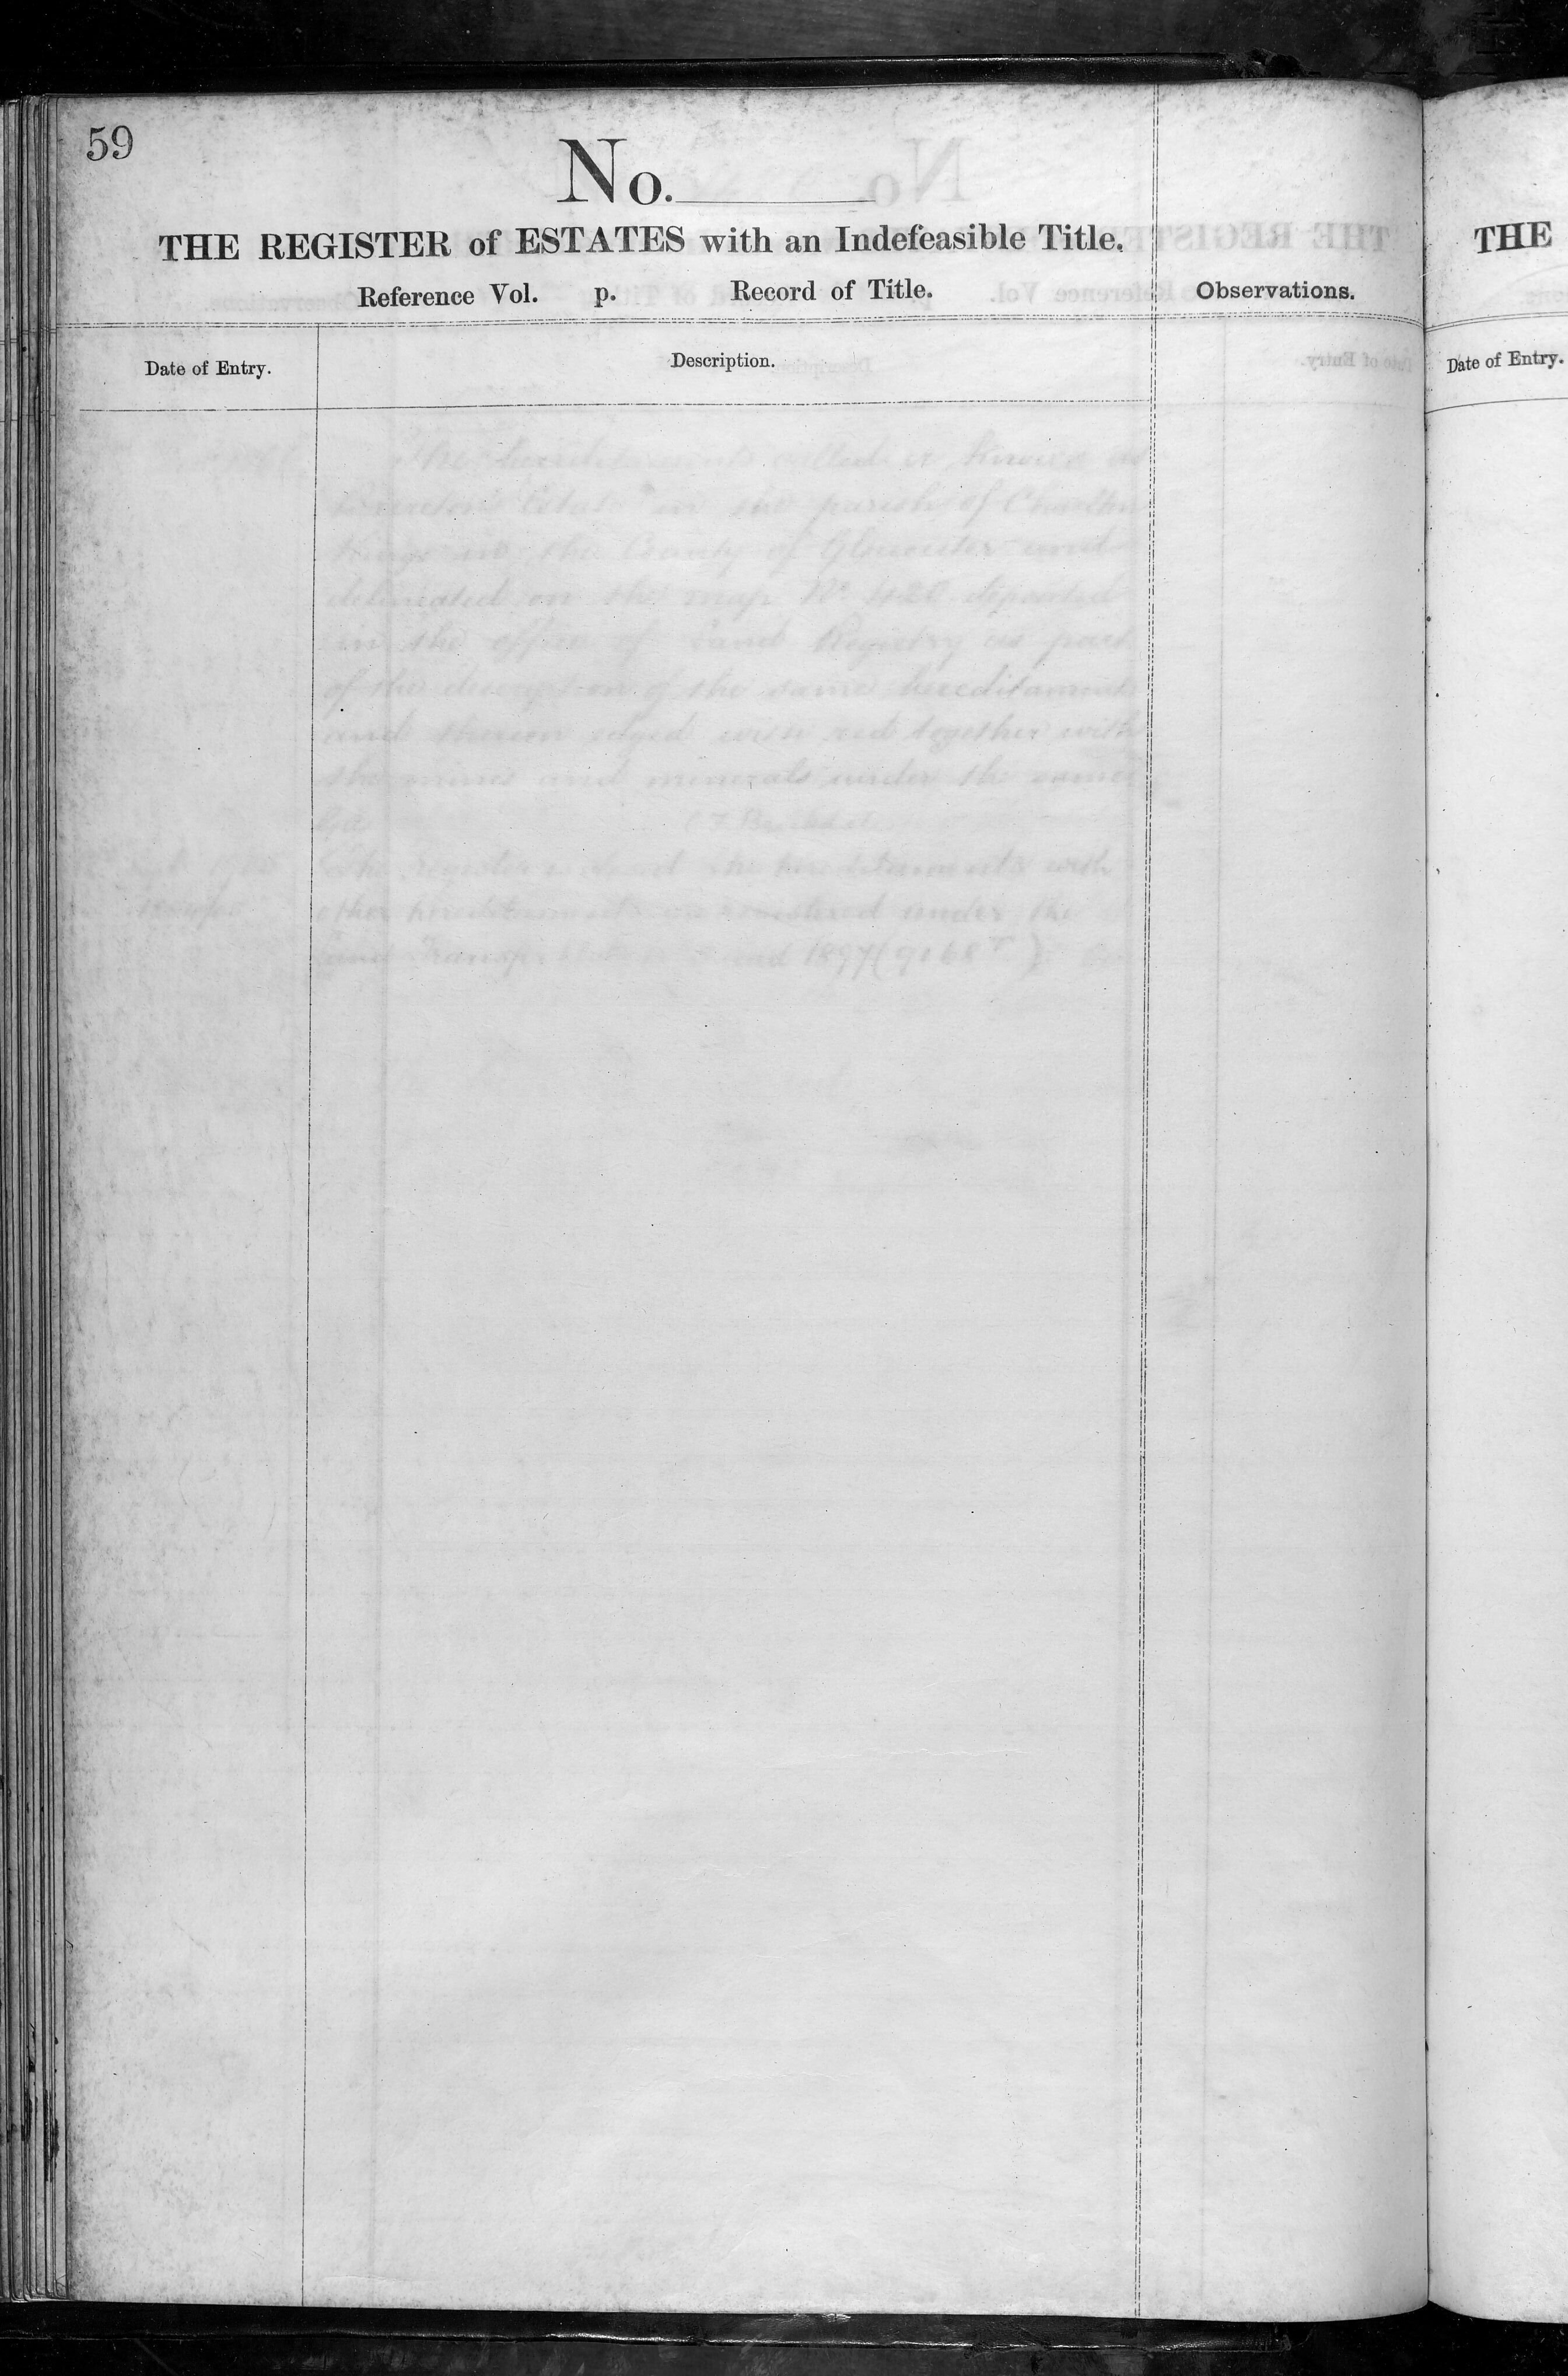 59
No.
THE REGISTER of ESTATES with an Indefeasible Title.
Reference Vol. p. Record of Title.
Observations.
Date of Entry.
Description.
The hereditaments called or known as
Estate in the parish of Charlton
Kings in the County of Gloucester and
delineated on the map No. deposited
in the office of Land Registry as part
of the description of the same hereditaments
and thereon edged with red together with
the mines and minerals under the same
The Register closed the hereditaments with
other hereditaments registered under the
Land Transfer and 1897 (9168 T)
THE
Date of Entry.